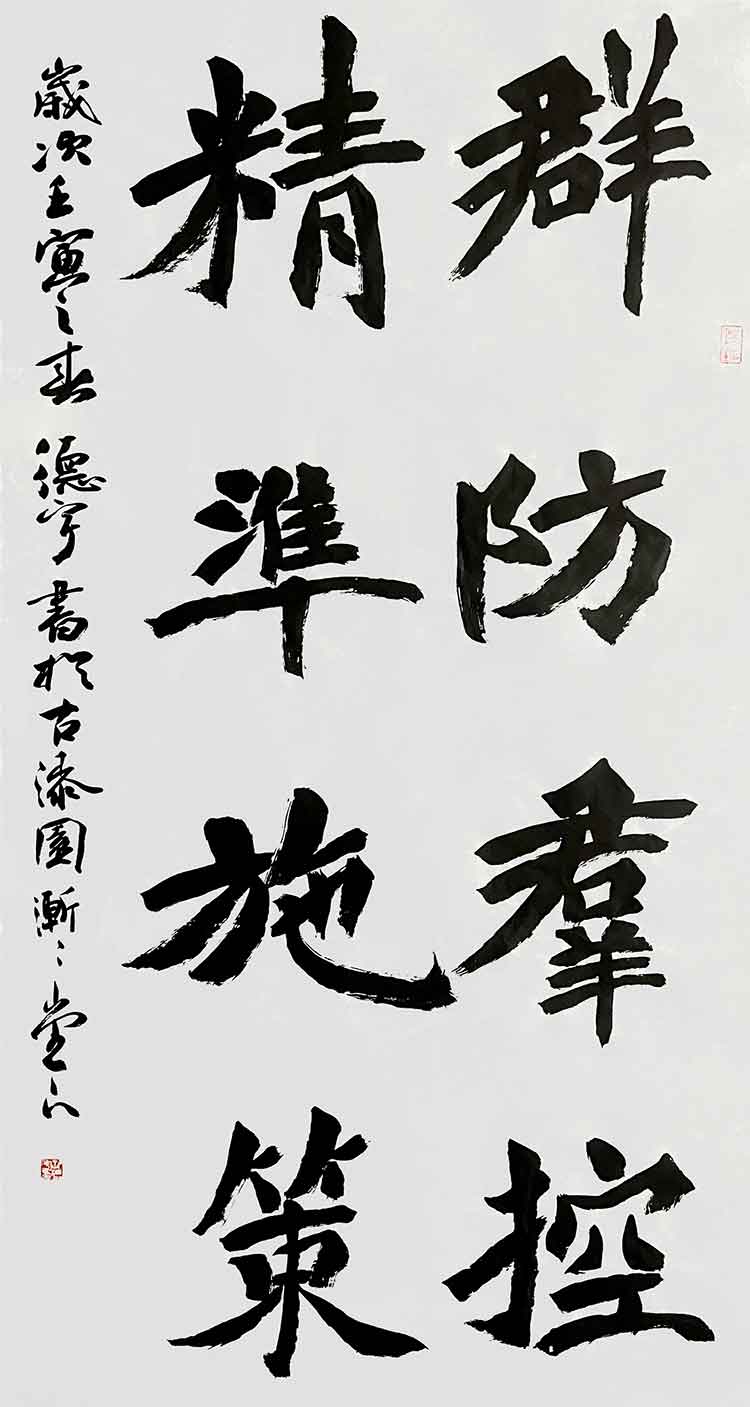 群防羣控
精準施策
歲次壬寅之春德宇書於古漆園漸〻堂